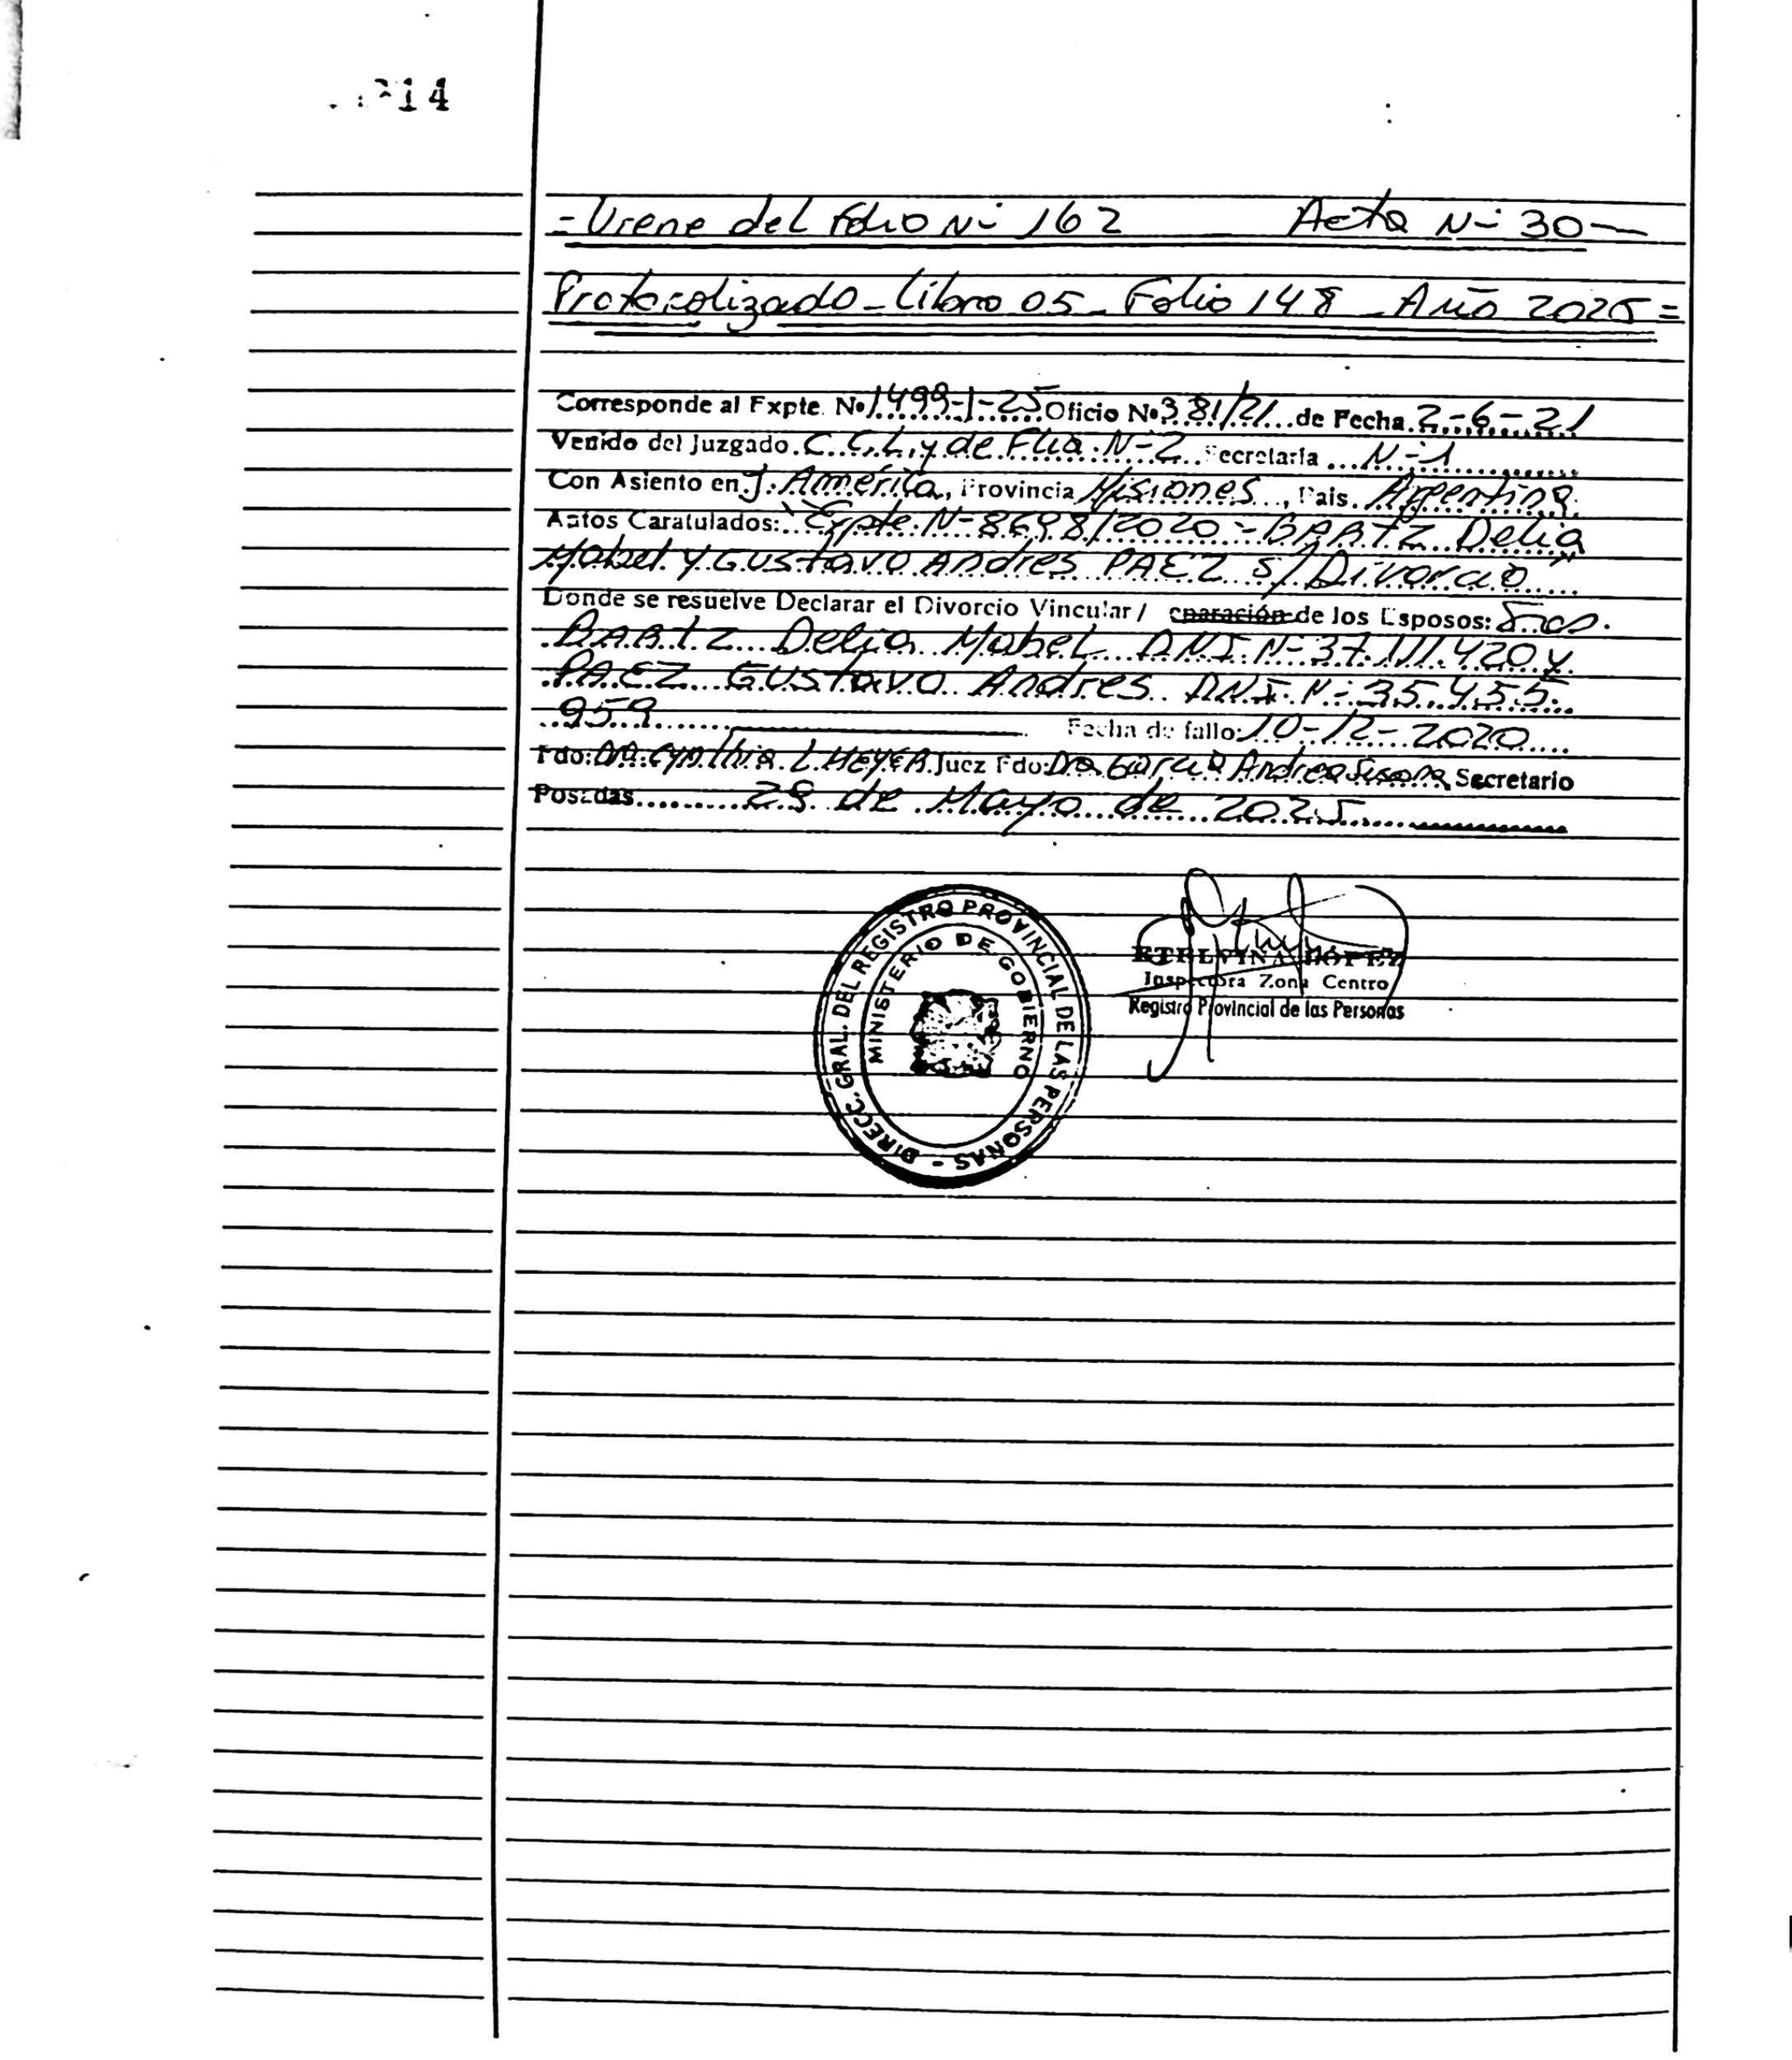 14
- Viene del Folio N- 162 Acta N- 30-
Protocolizado - Libro 05 - Folio 148 - Año 2025 =
Corresponde al Expte. Nº 1499-1-25 Oficio Nº 381/21 de Fecha 2-6-21
Venido del Juzgado C.C.L. y de Flia. N-2 Secretaría N-1
Con Asiento en J. América, Provincia Misiones, Pais. Argentina.
Autos Caratulados: "Expte. N- 8698/2020 - BARTZ Delia
Mabel Y GUSTAVO Andres PAEZ s/ Divorcio"
Donde se resuelve Declarar el Divorcio Vincular / eparación de los Esposos: Sres.
BARTZ Delia Mabel DNI N- 37.111.420 y
PAEZ GUSTAVO Andres DNI N- 35.455.
959 Fecha de fallo: 10-12-2020
Fdo: DRA. Cynthia L. HEYER Juez Fdo: Dra Garcia Andrea Susana Secretario
Posadas 28 de Mayo de 2025
DIRECC. GRAL. DEL REGISTRO PROVINCIAL DE LAS PERSONAS -
MINISTERIO DE GOBIERNO
ETELVINA LOPEZ
Inspectora Zona Centro
Registro Provincial de las Personas